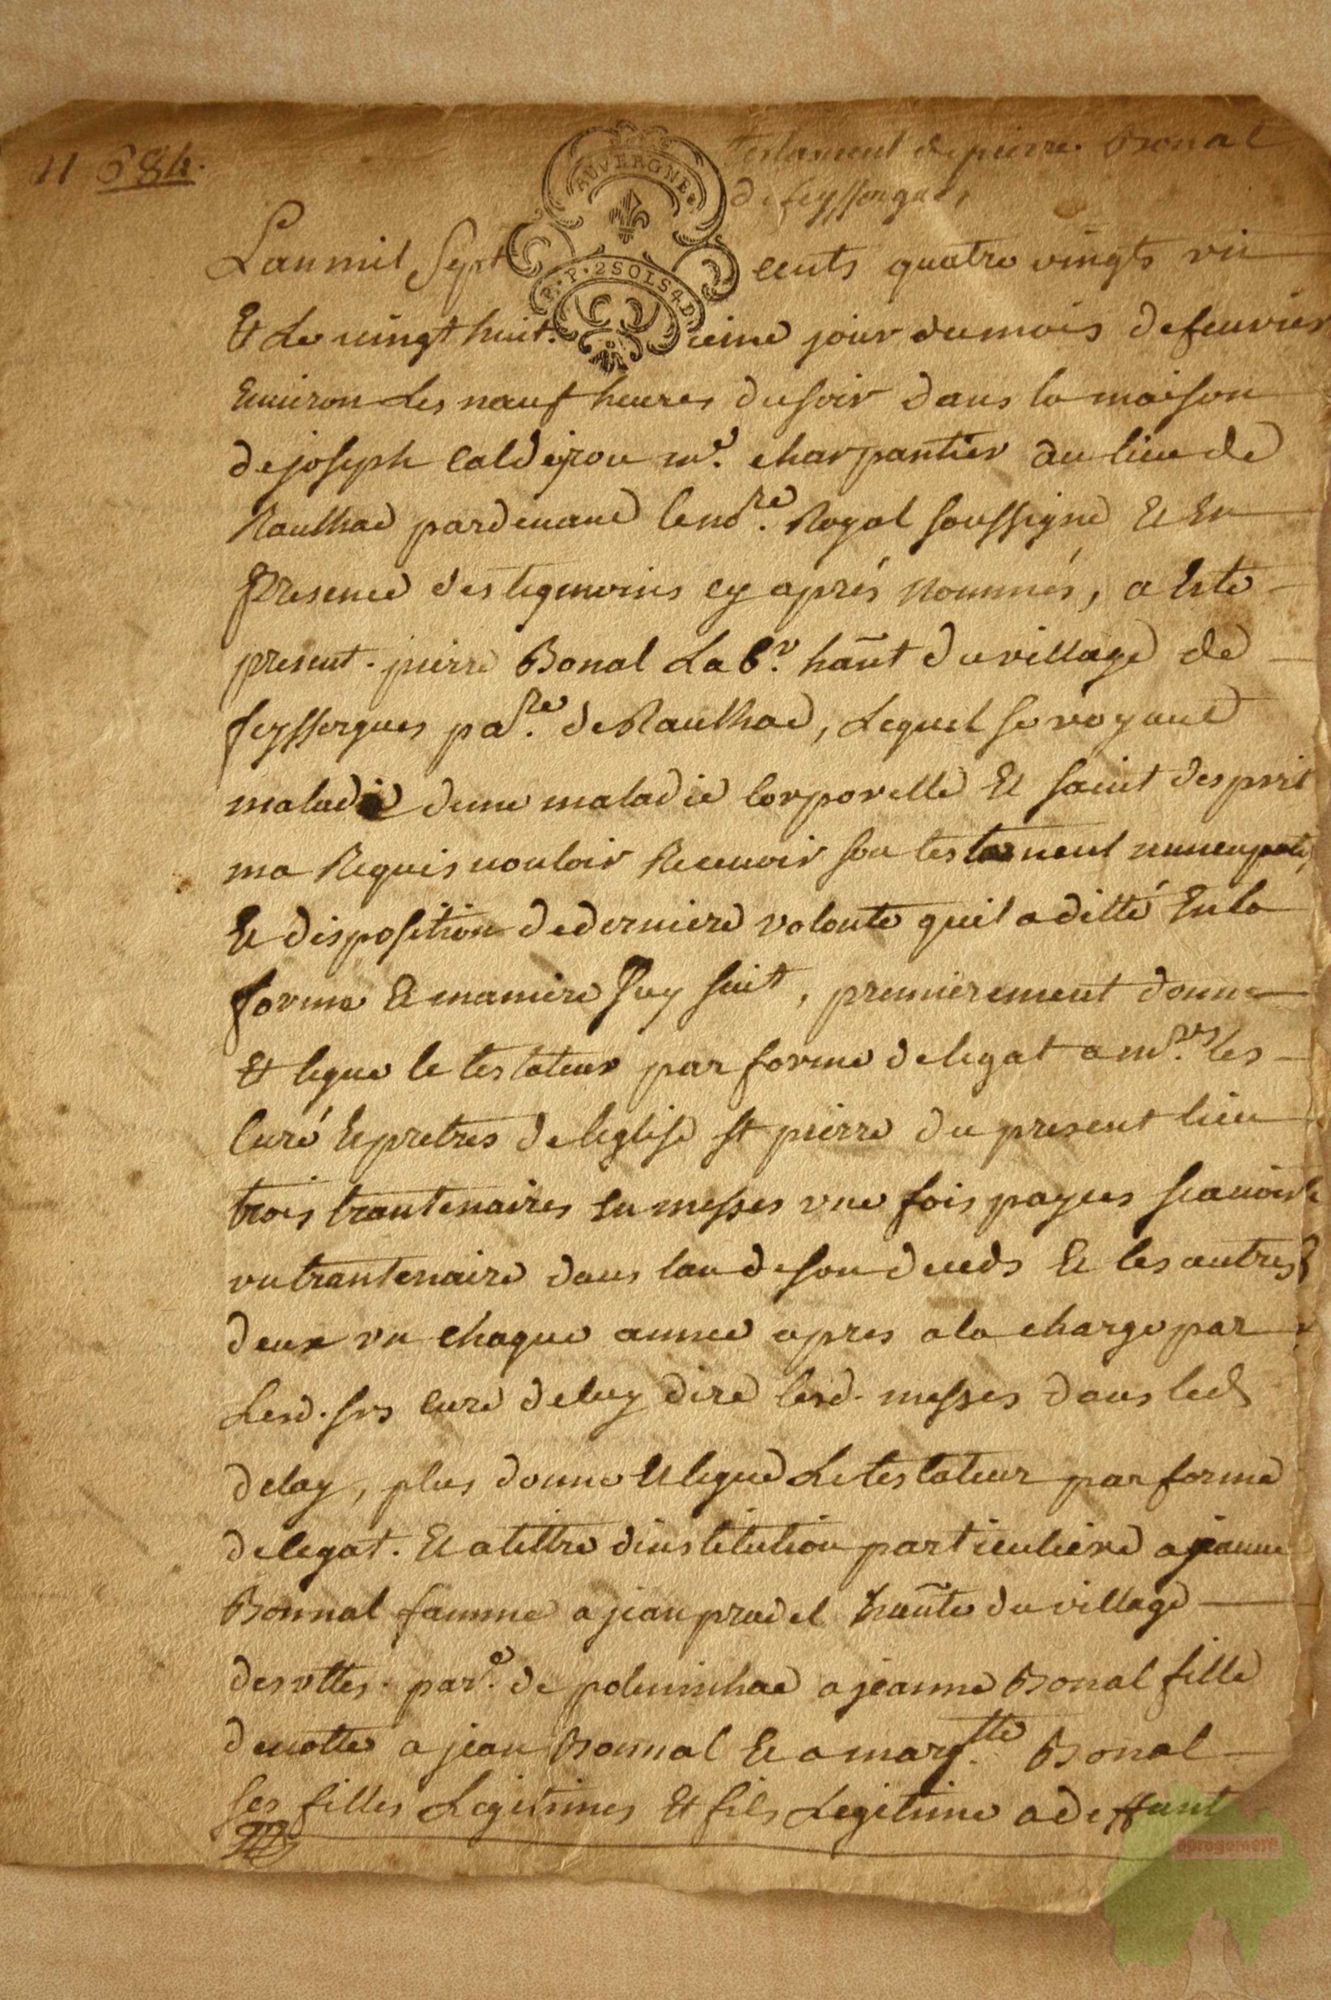 11 684.
testament de pierre Bonal
de feyssergues,
AUVERGNE
P.P. 2 SOLS 4 D.
Lan mil Sept cents quatre vingts un
Et Le vingt huit ieme jour du mois de feuvrier
Environ Les nauf heures du soir dans la maison
de joseph Caldeyrou me. charpantier au lieu de
Raulhac pardevant le nore. Royal soussigné Et En
Presence des tegmoins cy aprés Nommés, a Este
present pierre Bonal Labr. hant du village de
feyssergues pare. de Raulhac, Lequel se voyant
malade dune maladie Corporelle Et saint desprit
ma Requis vouloir Recevoir son testament nuncupatif
Et disposition de derniere volonte quil a ditté En la
forme Et maniere Suy suit, premierement donne
Et legue le testateur par forme de legat a mrs. les
Curé Et pretres de leglise st pierre du present lieu
trois trantenaires En messes une fois payees scavoir
un trantenaire dans lan de son deceds Et les autres
deux un chaque annee apres a la charge par
Lesd. srs cure de luy dire lesd. messes dans led
delay, plus donne Et legue Le testateur par forme
de legat. Et a tittre dinstitution particuliere a jeanne
Bonnal famme a jean pradel hante du village
desottes pare. de poluminhac a jeanne Bonal fille
devotte a jean Bonnal Et a margtte Bonal
ses filles Legitimes Et fils Legitime a deffunt
aprogemere